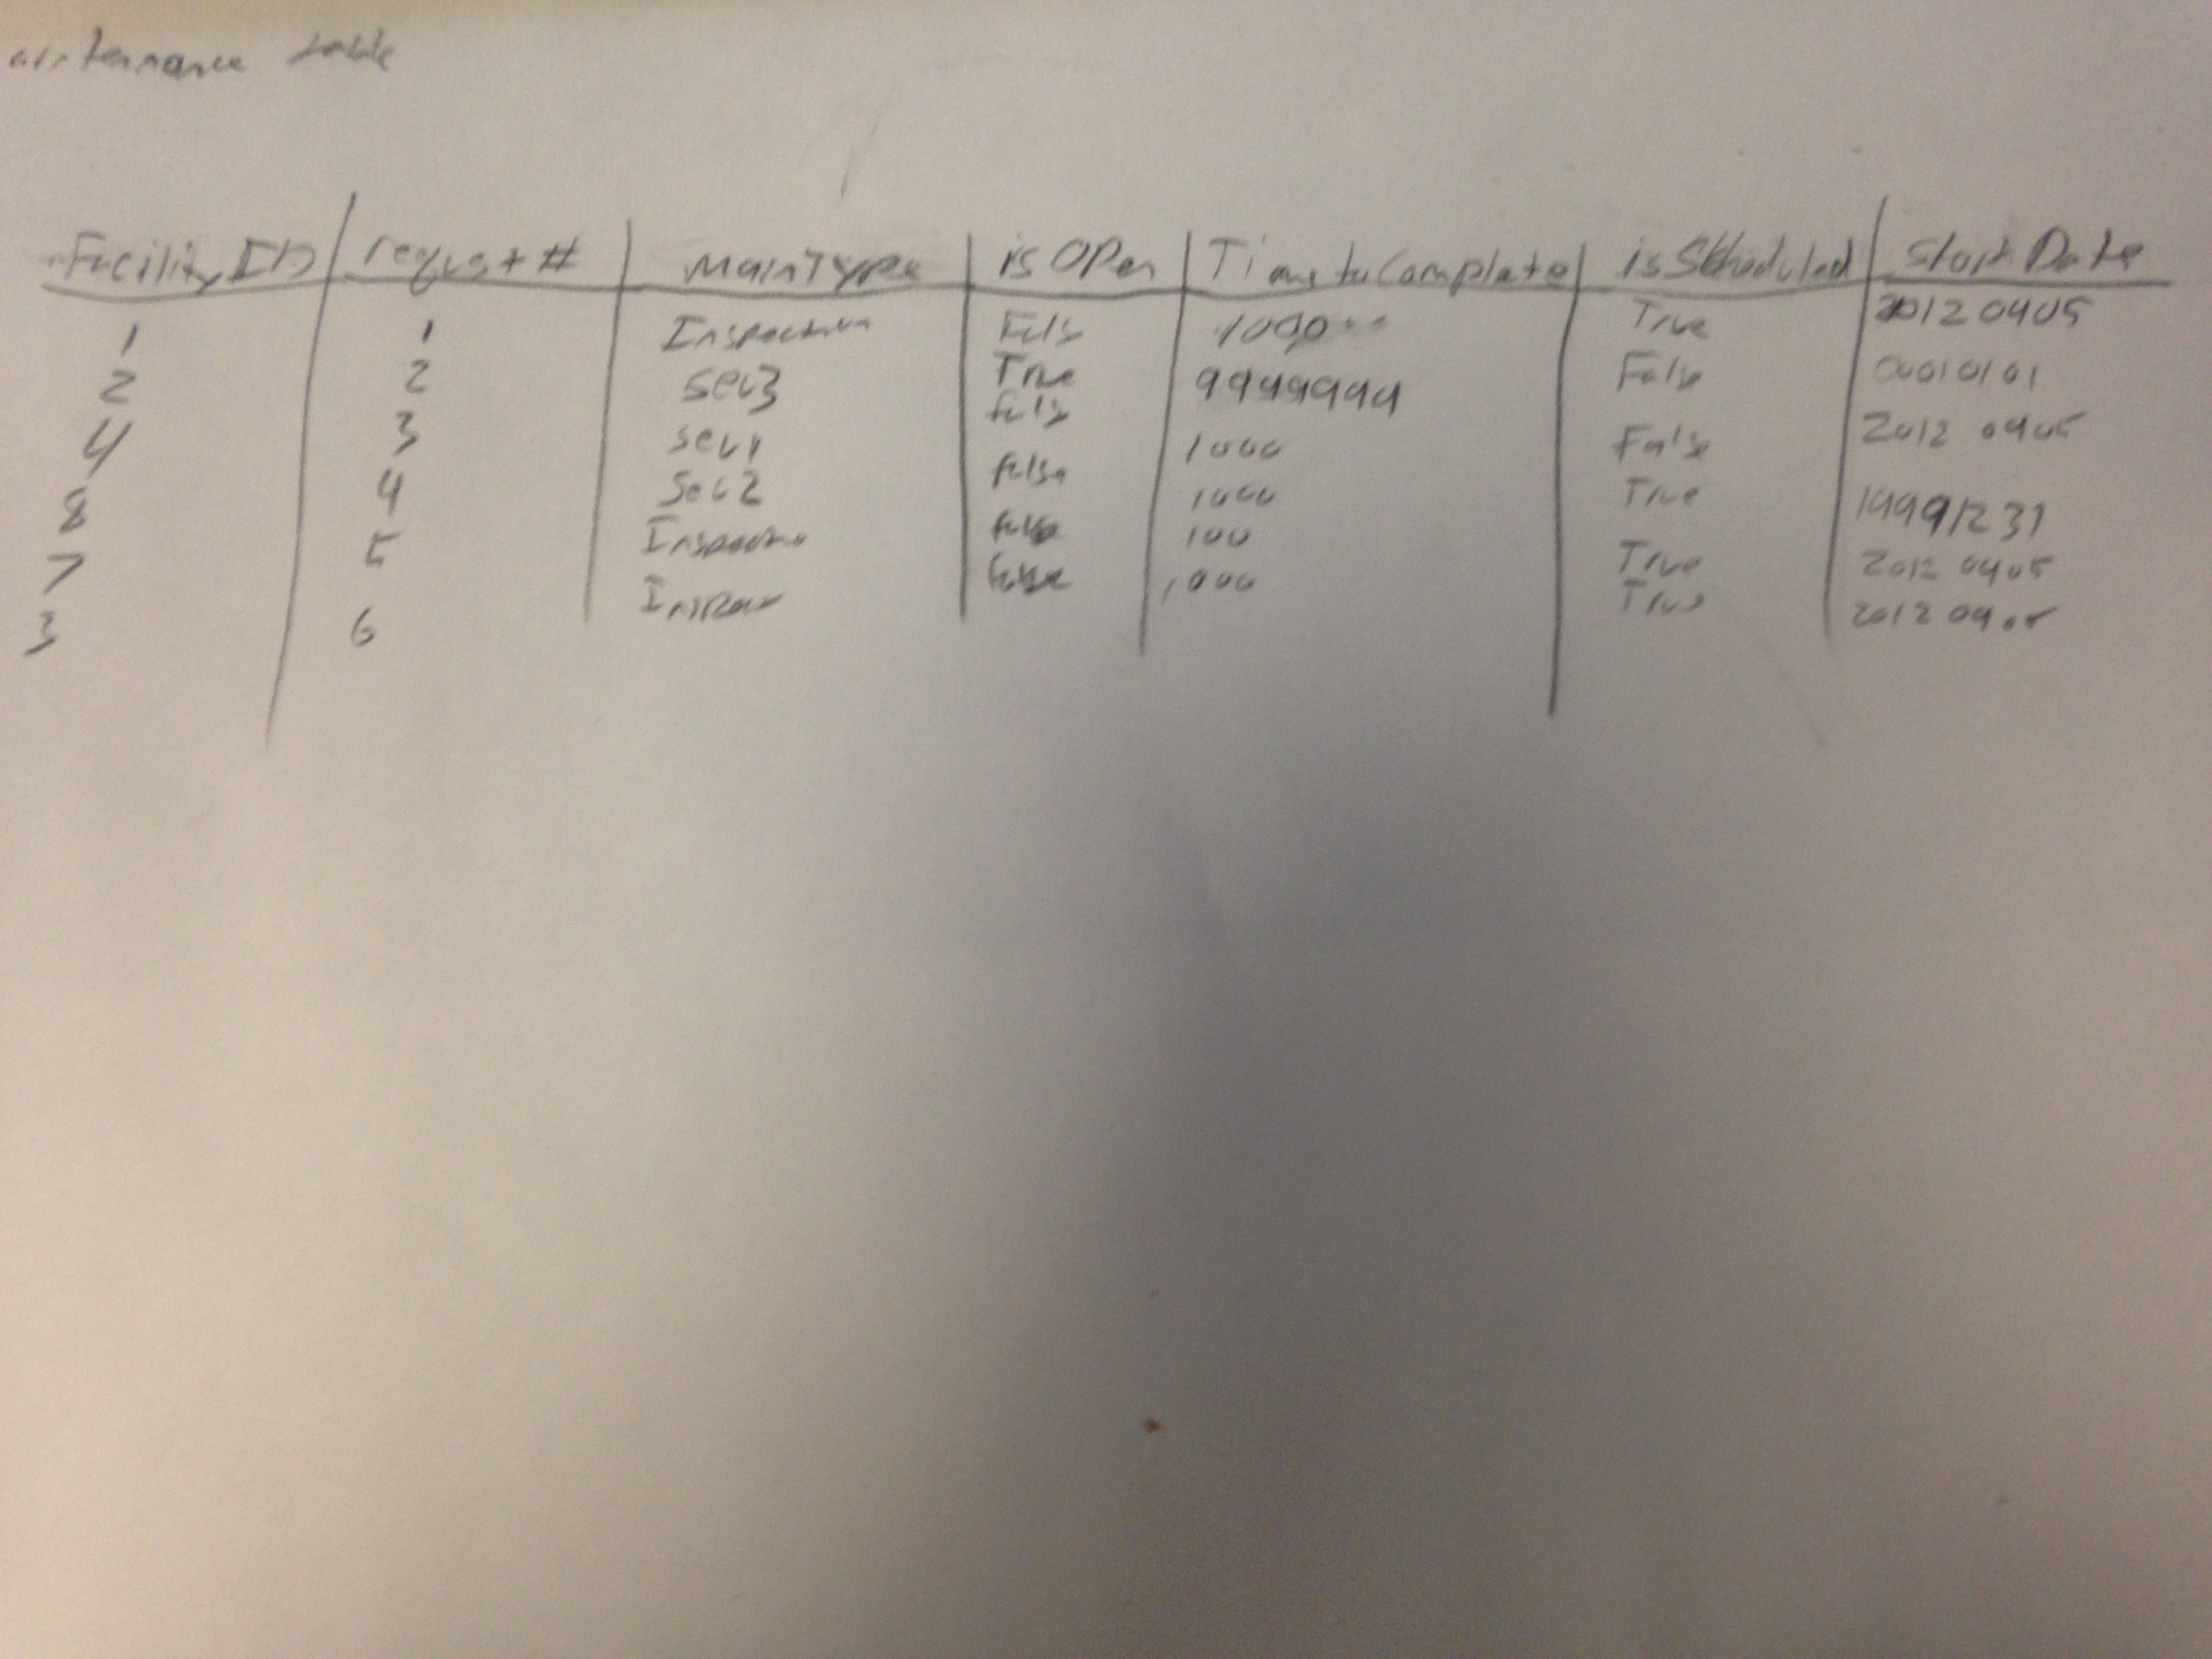 aintenance table
Facility ID | requst # | MainType | is OPen | Time to Complate | is Sthoduled | Start Date
1 1 Inspection Fals True 20120405
2 2 Sev3 True 99999999 Fals 00010101
4 3 Sev1 fals 1000 Fals 2012 0405
8 4 Sev2 false 1000 True 19991231
7 5 false 100 True 2012 0405
3 6 false 1000 True 2012 0905